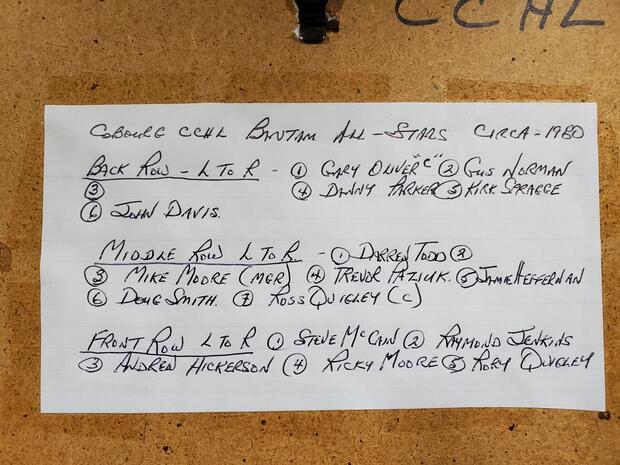 CCHL
COBOURG CCHL BANTAM ALL-STARS CIRCA-1980
BACK ROW - L TO R - ① GARY OLIVER "C" ② GUS NORMAN
③ ④ DANNY PARKER ⑤ KIRK SPRAGGE
⑥ JOHN DAVIS.
MIDDLE ROW L TO R - ① DARREN TODD ②
③ MIKE MOORE (MGR) ④ TREVOR PAZIUK. ⑤ JAMIE HEFFERNAN
⑥ DOUG SMITH. ⑦ ROSS QUIGLEY (C)
FRONT ROW L TO R ① STEVE MCCAIN ② RAYMOND JENKINS
③ ANDREW HICKERSON ④ RICKY MOORE ⑤ RORY QUIGLEY